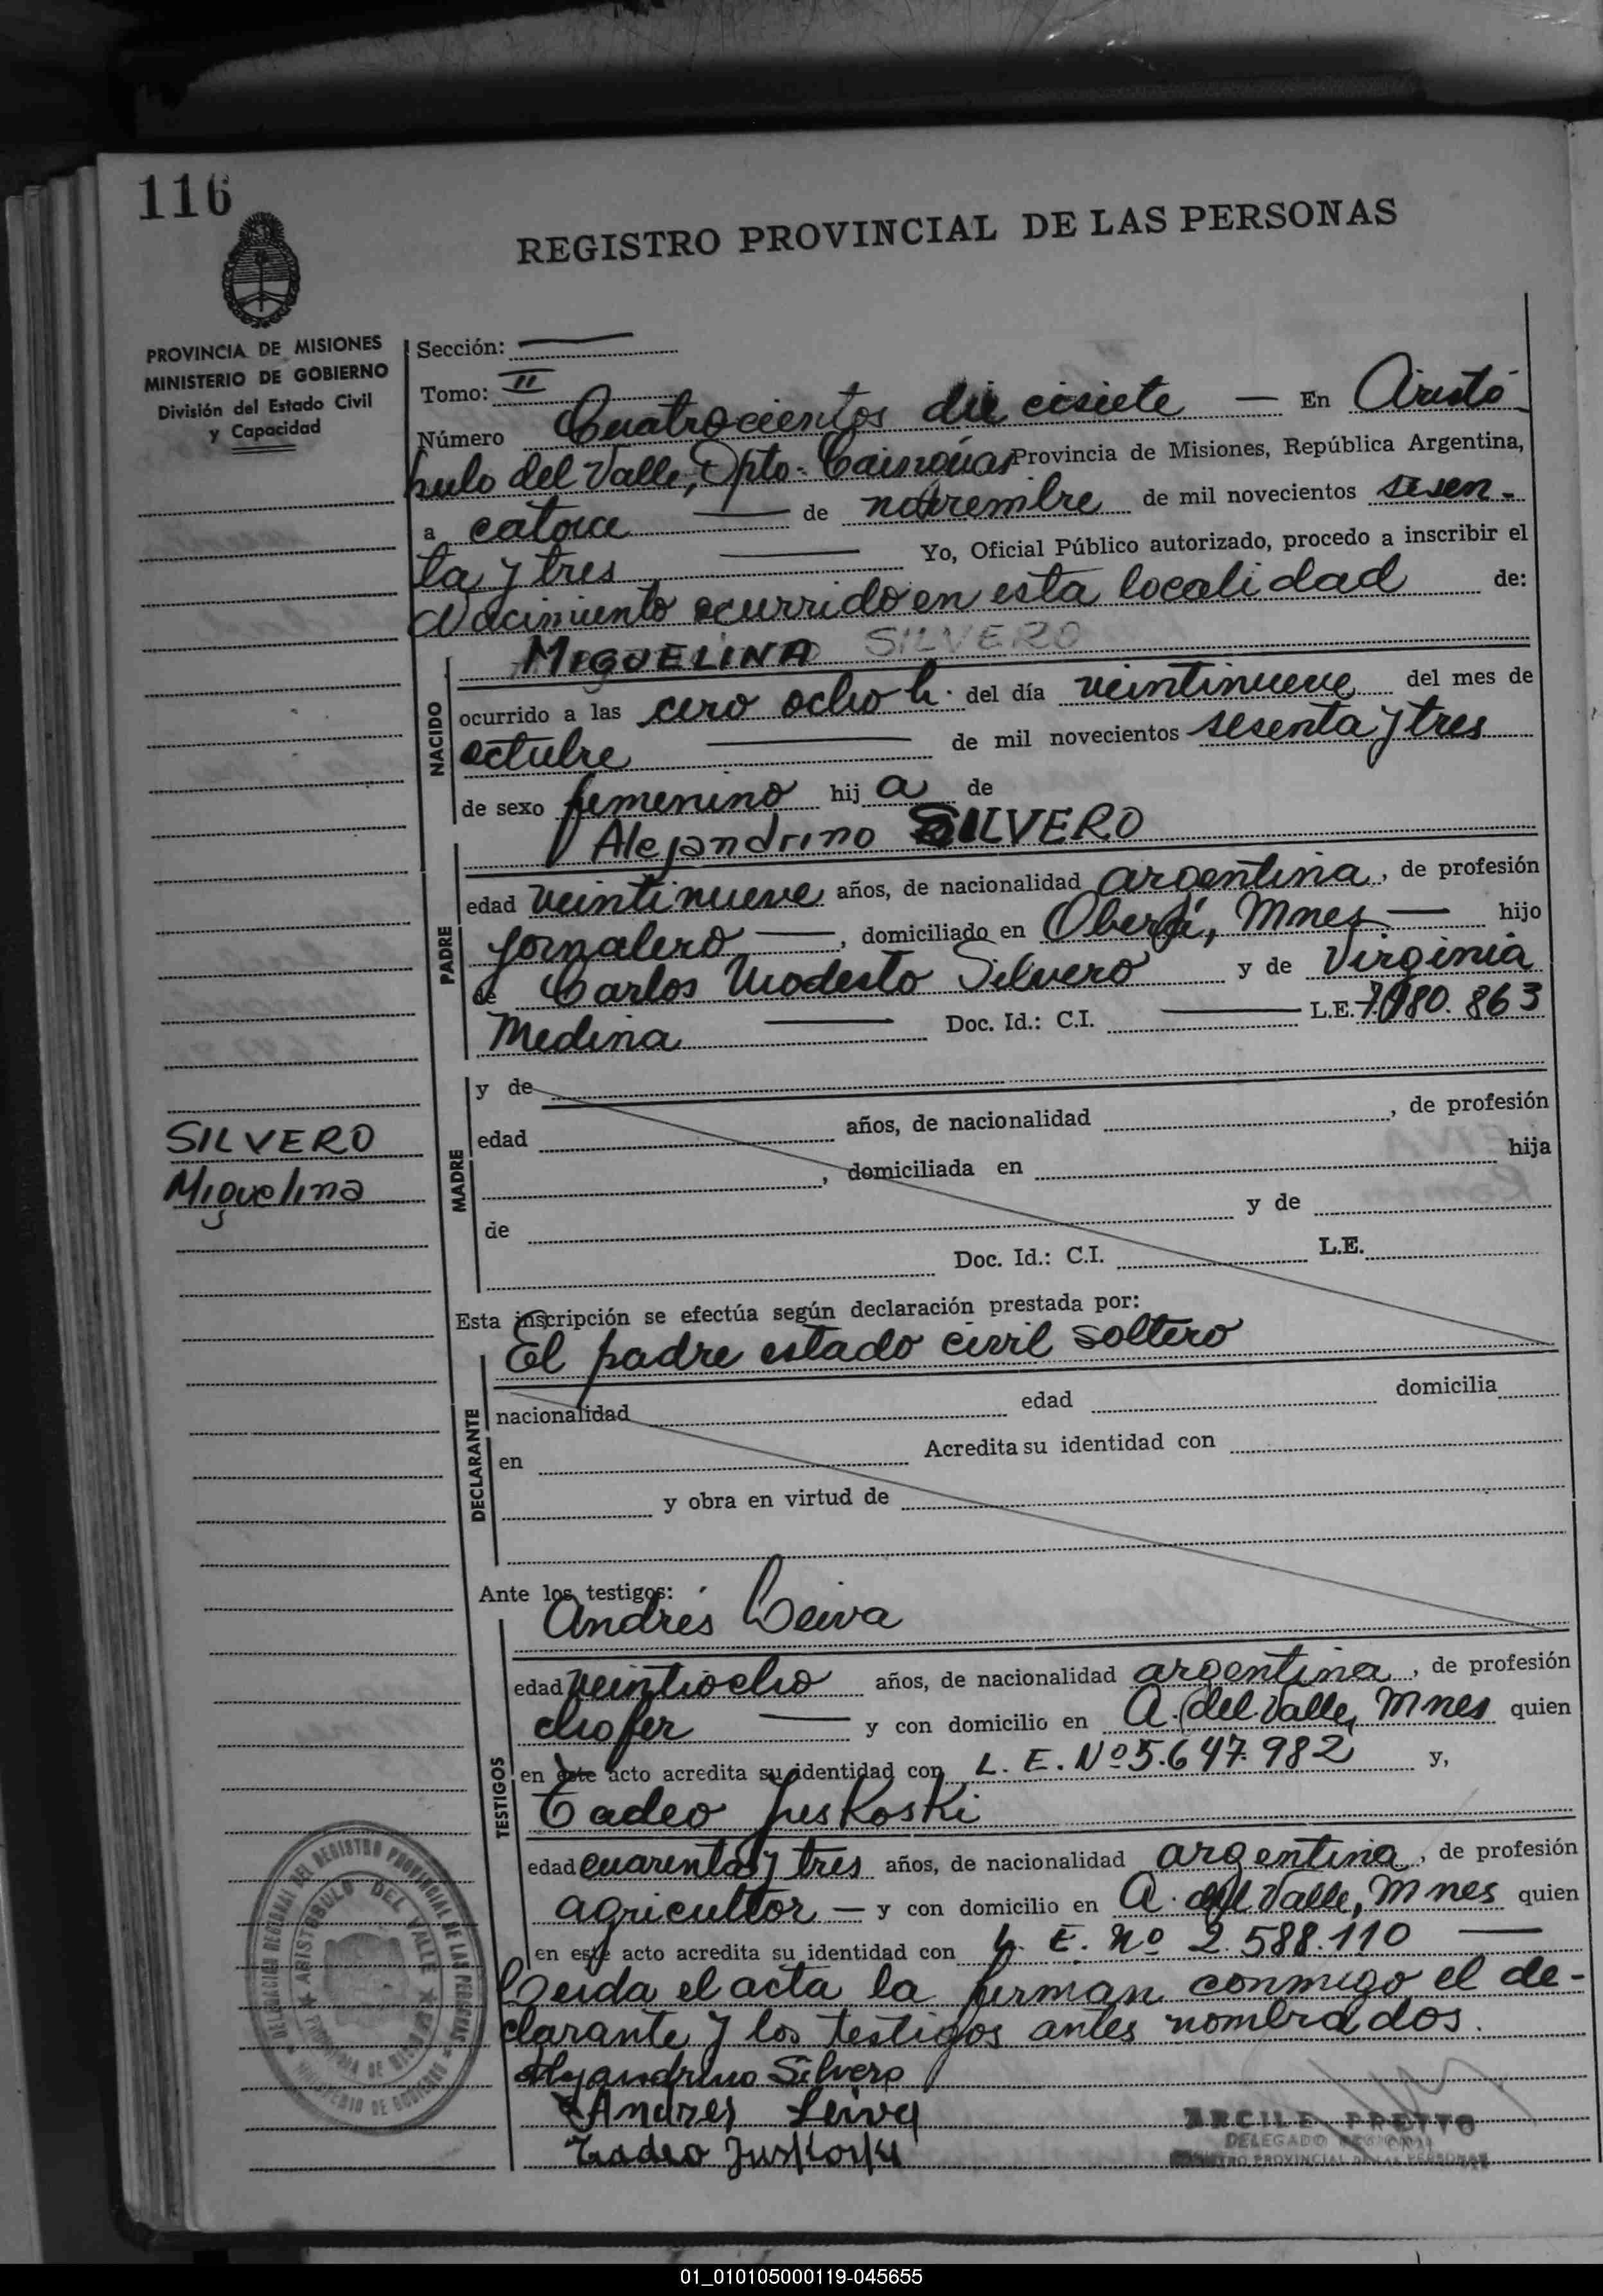 116
REGISTRO PROVINCIAL DE LAS PERSONAS
PROVINCIA DE MISIONES
MINISTERIO DE GOBIERNO
División del Estado Civil
y Capacidad
Sección:
Tomo: II
Número Cuatrocientos diecisiete — En Aristó-
bulo del Valle, Dpto. Cainguás Provincia de Misiones, República Argentina,
a catorce — de noviembre de mil novecientos sesen-
ta y tres — Yo, Oficial Público autorizado, procedo a inscribir el
Nacimiento ocurrido en esta localidad de:
MIGUELINA SILVERO
NACIDO
ocurrido a las cero ocho h. del día veintinueve del mes de
octubre — de mil novecientos sesenta y tres
de sexo femenino hij a de
Alejandrino SILVERO
PADRE
edad veintinueve años, de nacionalidad argentina, de profesión
jornalero —, domiciliado en Oberá, Mnes — hijo
de Carlos Modesto Silvero y de Virginia
Medina — Doc. Id.: C.I. — L.E. 80.863
MADRE
y de
edad años, de nacionalidad , de profesión
, domiciliada en hija
de y de
Doc. Id.: C.I. L.E.
SILVERO
Miguelina
Esta inscripción se efectúa según declaración prestada por:
El padre estado civil soltero
DECLARANTE
nacionalidad edad domicilia
en Acredita su identidad con
y obra en virtud de
Ante los testigos:
Andrés Leiva
TESTIGOS
edad veintiocho años, de nacionalidad argentina, de profesión
chofer — y con domicilio en A. del Valle, Mnes quien
en este acto acredita su identidad con L. E. Nº 5.647.982 y,
Tadeo Juskoski
edad cuarenta y tres años, de nacionalidad argentina, de profesión
agricultor — y con domicilio en A. del Valle, Mnes quien
en este acto acredita su identidad con L. E. Nº 2.588.110 —
Leida el acta la firman conmigo el de-
clarante y los testigos antes nombrados.
Alejandrino Silvero
Andres Leiva
Tadeo Juskoski
DELEGACION REGIONAL DEL REGISTRO PROVINCIAL DE LAS PERSONAS
ARISTOBULO DEL VALLE
PROVINCIA DE MISIONES
MINISTERIO DE GOBIERNO
ARCILE PRETTO
DELEGADO REGIONAL
REGISTRO PROVINCIAL DE LAS PERSONAS
01_010105000119-045655